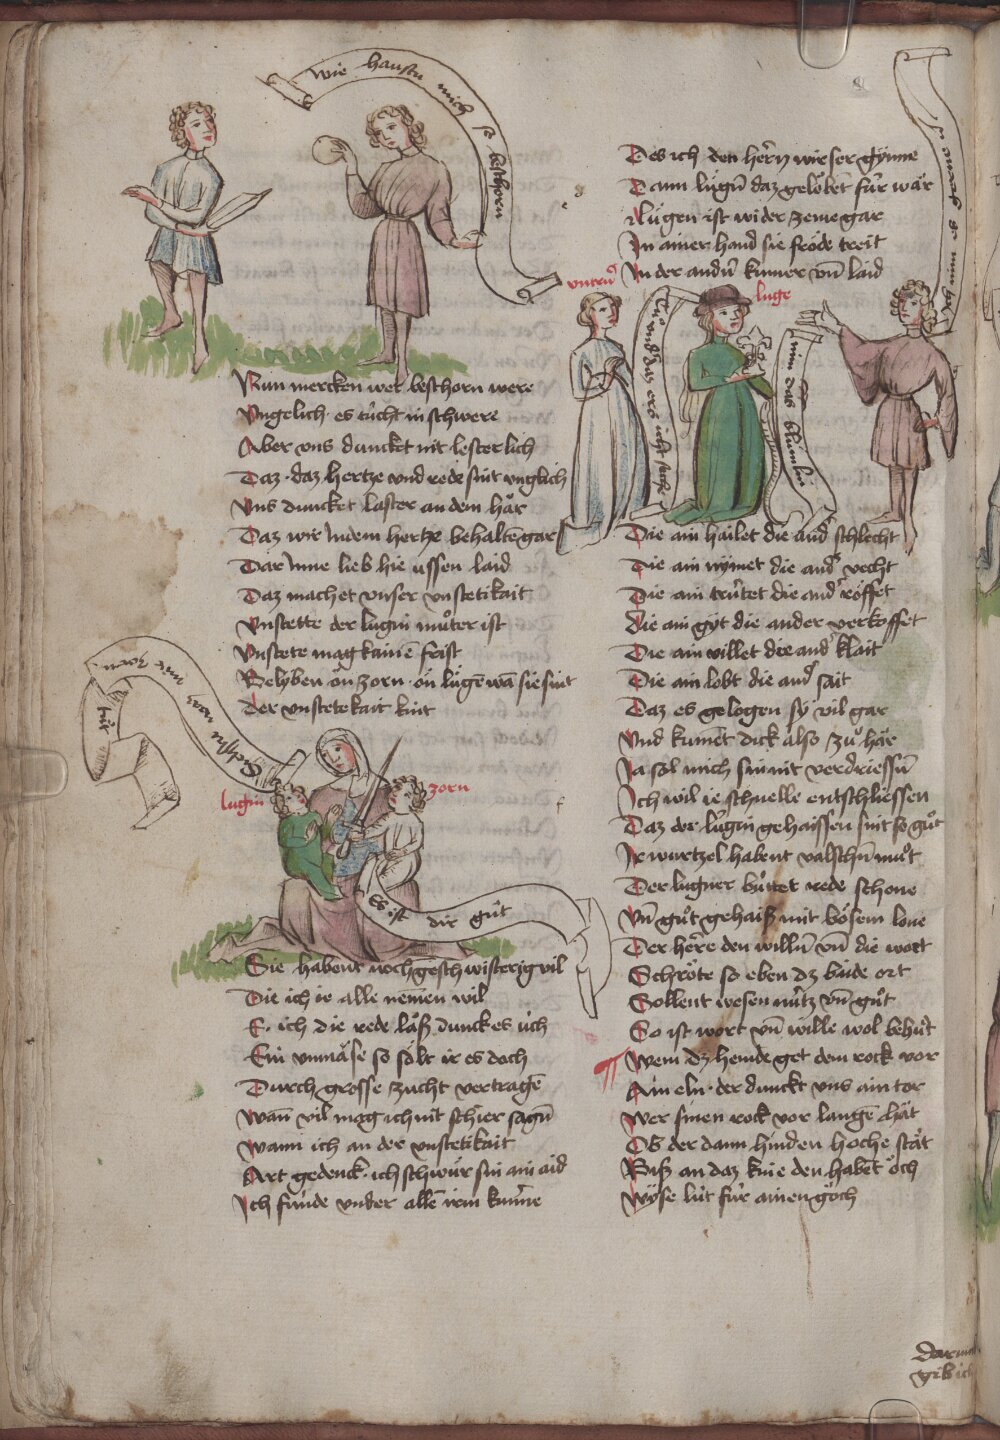 wie haustu mich so beschorn
Nun mercken wer beschorn were
Vngelich es tücht in schwere
Aber vns duncket nit lesterlich
Daz daz hertze vnd rede sint vnglich
Vns duncket laster an dem här
Daz wir Indem hertze behaltē gar
Dar Inne lieb hie ussen laid
Daz machet vnser vnstetikait
Vnstette der lugin můter ist
Vnstete mag kainē frist
Belyben ön zorn on lügē wā sie sint
Der vnstetekait kint
lugin
zorn
Es ist dir güt
Sie habent noch geschwisterig vil
Die ich ie alle nemen wil
E ich die rede läß Dunck es üch
Ein vnmäse so sölt ir es doch
Durch grosse zucht vertragē
Wañ vil mag ich nit schier sagñ
Wann ich an der vnstetikait
Art gedenck ich schwür sin ain aid
Ich funde vnder allē irm kunne
Des ich den herñ wirser gunne
Dann lügñ daz gelöbēt für wär
Lügen ist wider zeme gar
In ainer hand sie fröde treit
In der andñ kumer vñ laid
vntrü
luge
nim das blümlin
Die ain hailet die and' schlecht
Die ain nymet die and' vecht
Die ain trütet die and' röffet
Die ain gyt die ander verkoffet
Die ain villet die and' klait
Die ain lobt die and' sait
Daz es gelogen sy vil gar
Vnd kumēt dick also zü här
Ja sol mich sin nit verdriessñ
Ich wil ie schnelle entschliessen
Daz der lügin gehaissen sint so gůt
Ir wurtzel habent valschñ můt
Der lugner büttet rede schone
Vñ gůt gehaiß mit bösem lone
Der herre den willñ vñ die wort
Schröte so eben dz baide ort
Sollent wesen nütz vñ gůt
So ist wort vñ wille wol behůt
Wem dz hemde get dem rock vor
Ain eln der dunckt vns ain tor
Wer sinen rock vor langē hät
Ob der dann hinden hoche stät
Biß an daz knie den habēt öch
Wyse lüt für ainen göch